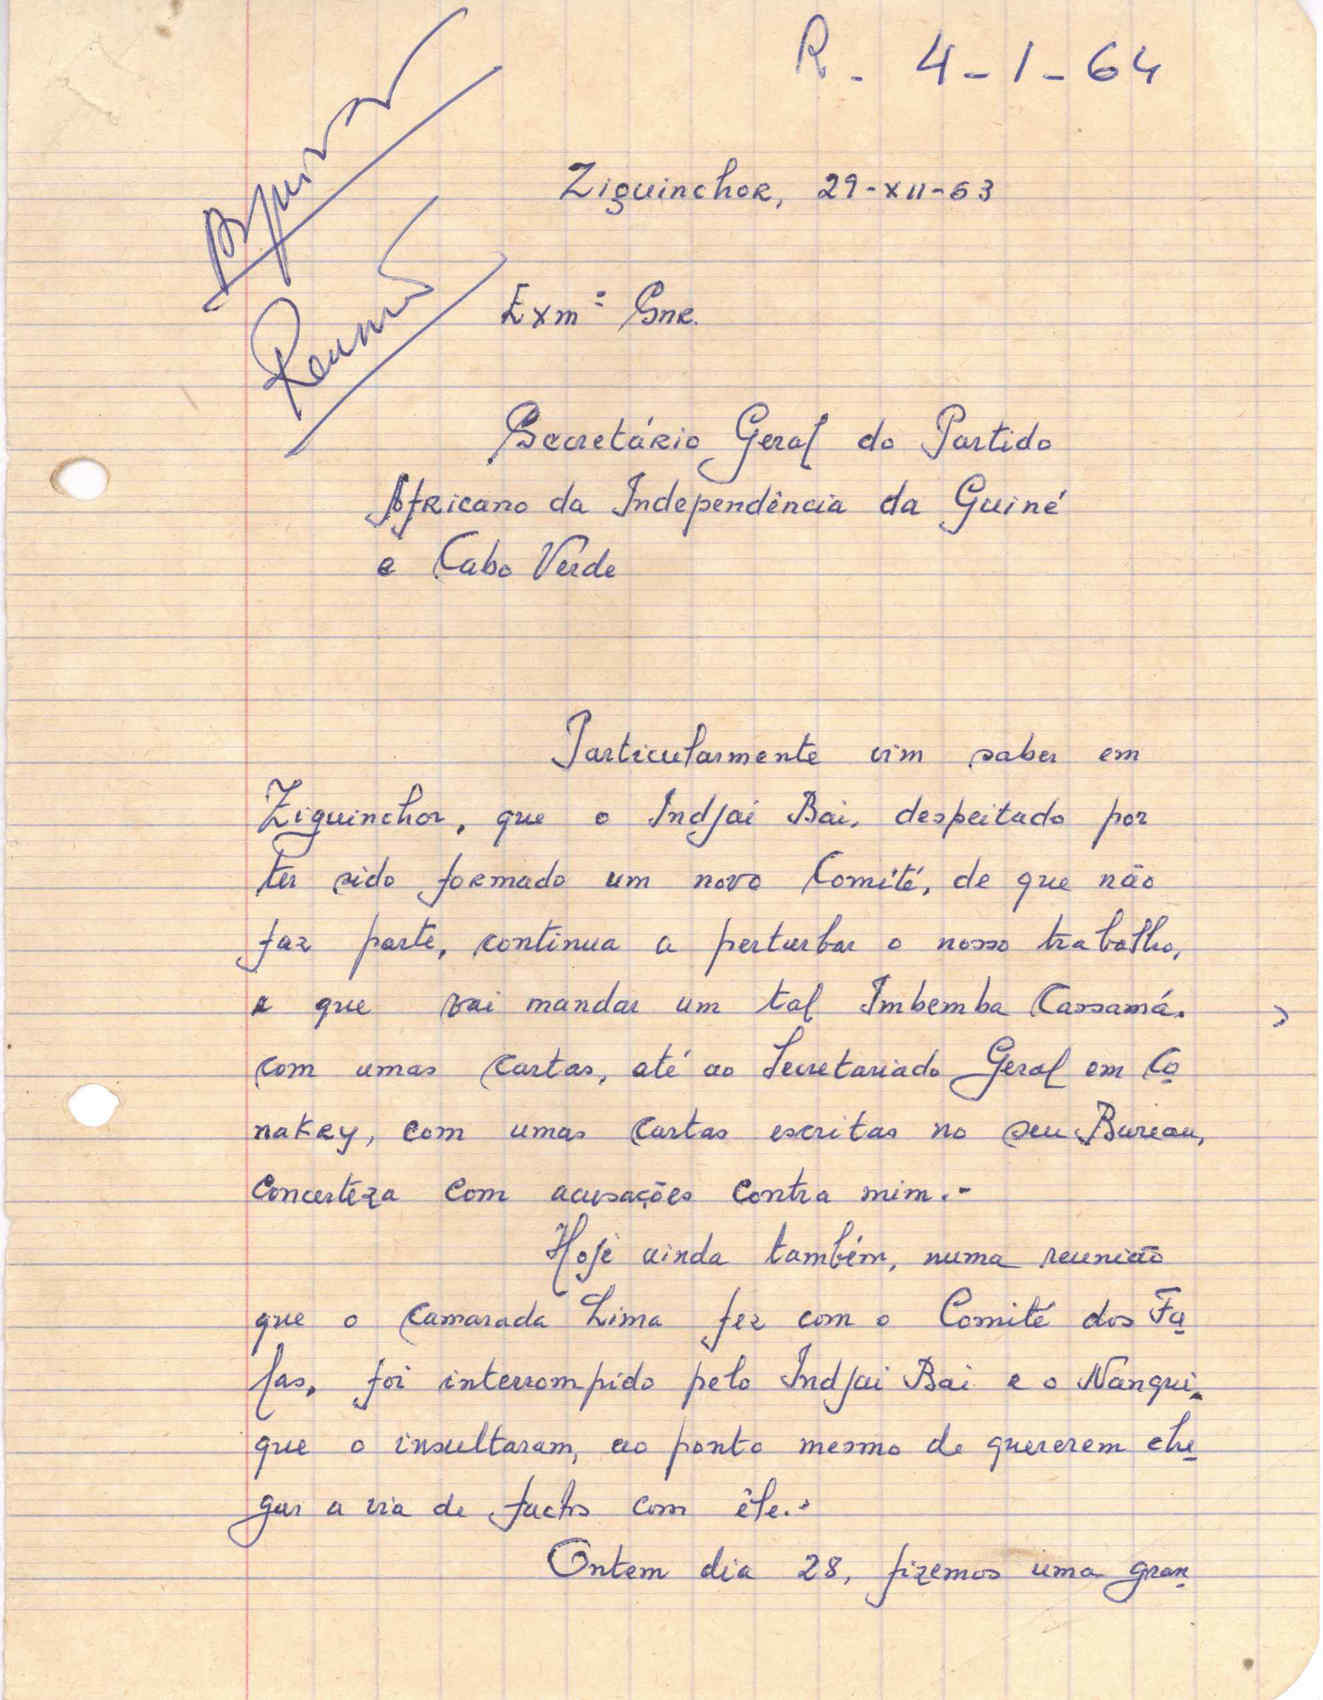 R. 4-1-64
Ziguinchor, 29-XII-63
Exmº Snr.
Secretário Geral do Partido
Africano da Independência da Guiné
e Cabo Verde
Particularmente vim saber em
Ziguinchor, que o Indjai Bai, despeitado por
ter sido formado um novo Comité, de que não
faz parte, continua a perturbar o nosso trabalho,
e que vai mandar um tal Imbemba Cassamá,
com umas cartas, até ao Secretariado Geral em Co
nakry, com umas cartas escritas no seu Bureau,
concerteza com acusações contra mim.-
Hoje ainda também, numa reunião
que o camarada Lima fez com o Comité dos Fu
las, foi interrompido pelo Indjai Bai e o Nanqui.
que o insultaram, ao ponto mesmo de quererem che
gar a via de factos com êle.-
Ontem dia 28, fizemos uma gran